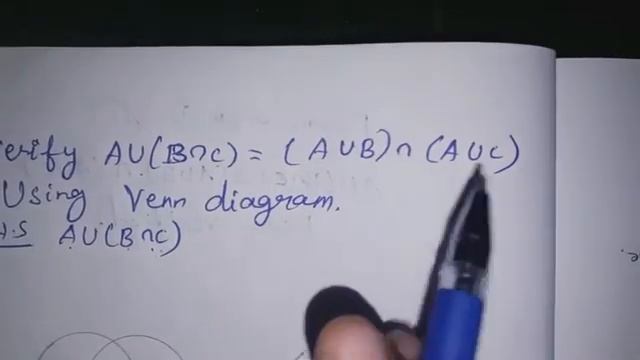 erify AU(B∩C) = (AUB)∩(AUC)
Using Venn diagram.
H.S AU(B∩C)